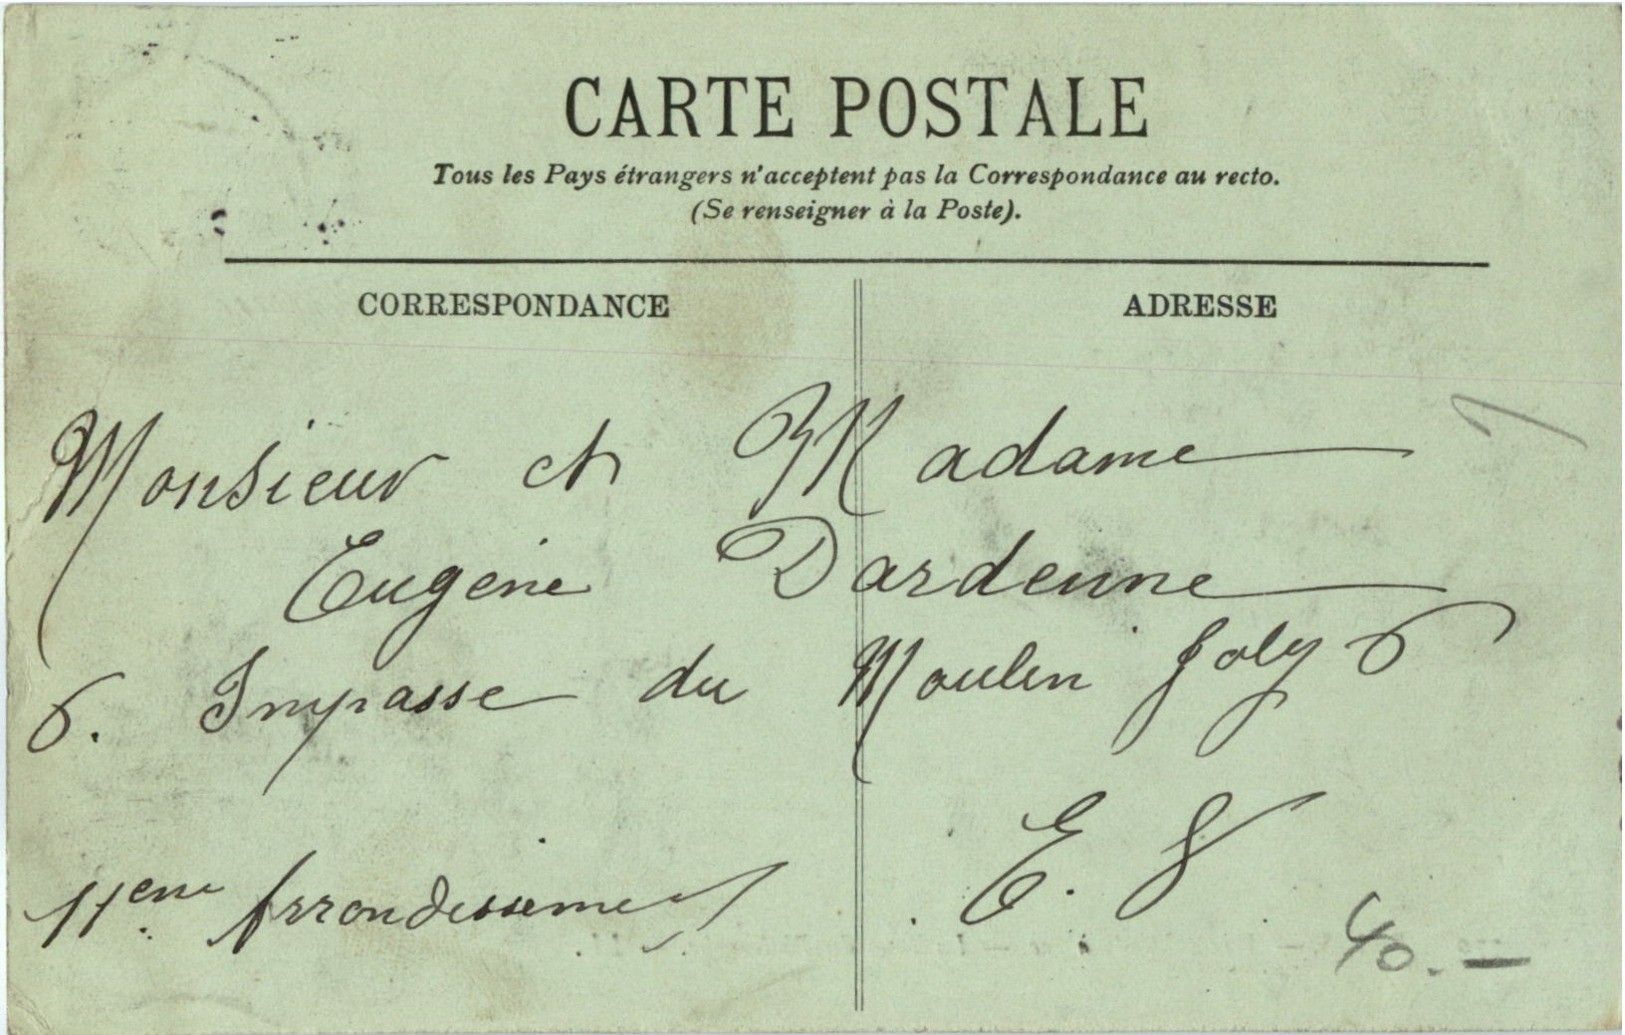 CARTE POSTALE
Tous les Pays étrangers n'acceptent pas la Correspondance au recto.
(Se renseigner à la Poste).
CORRESPONDANCE
ADRESSE
Monsieur et Madame
Eugène Dardenne
6. Impasse du Moulin Joly 6
11eme Arrondissement
E. V
40.—